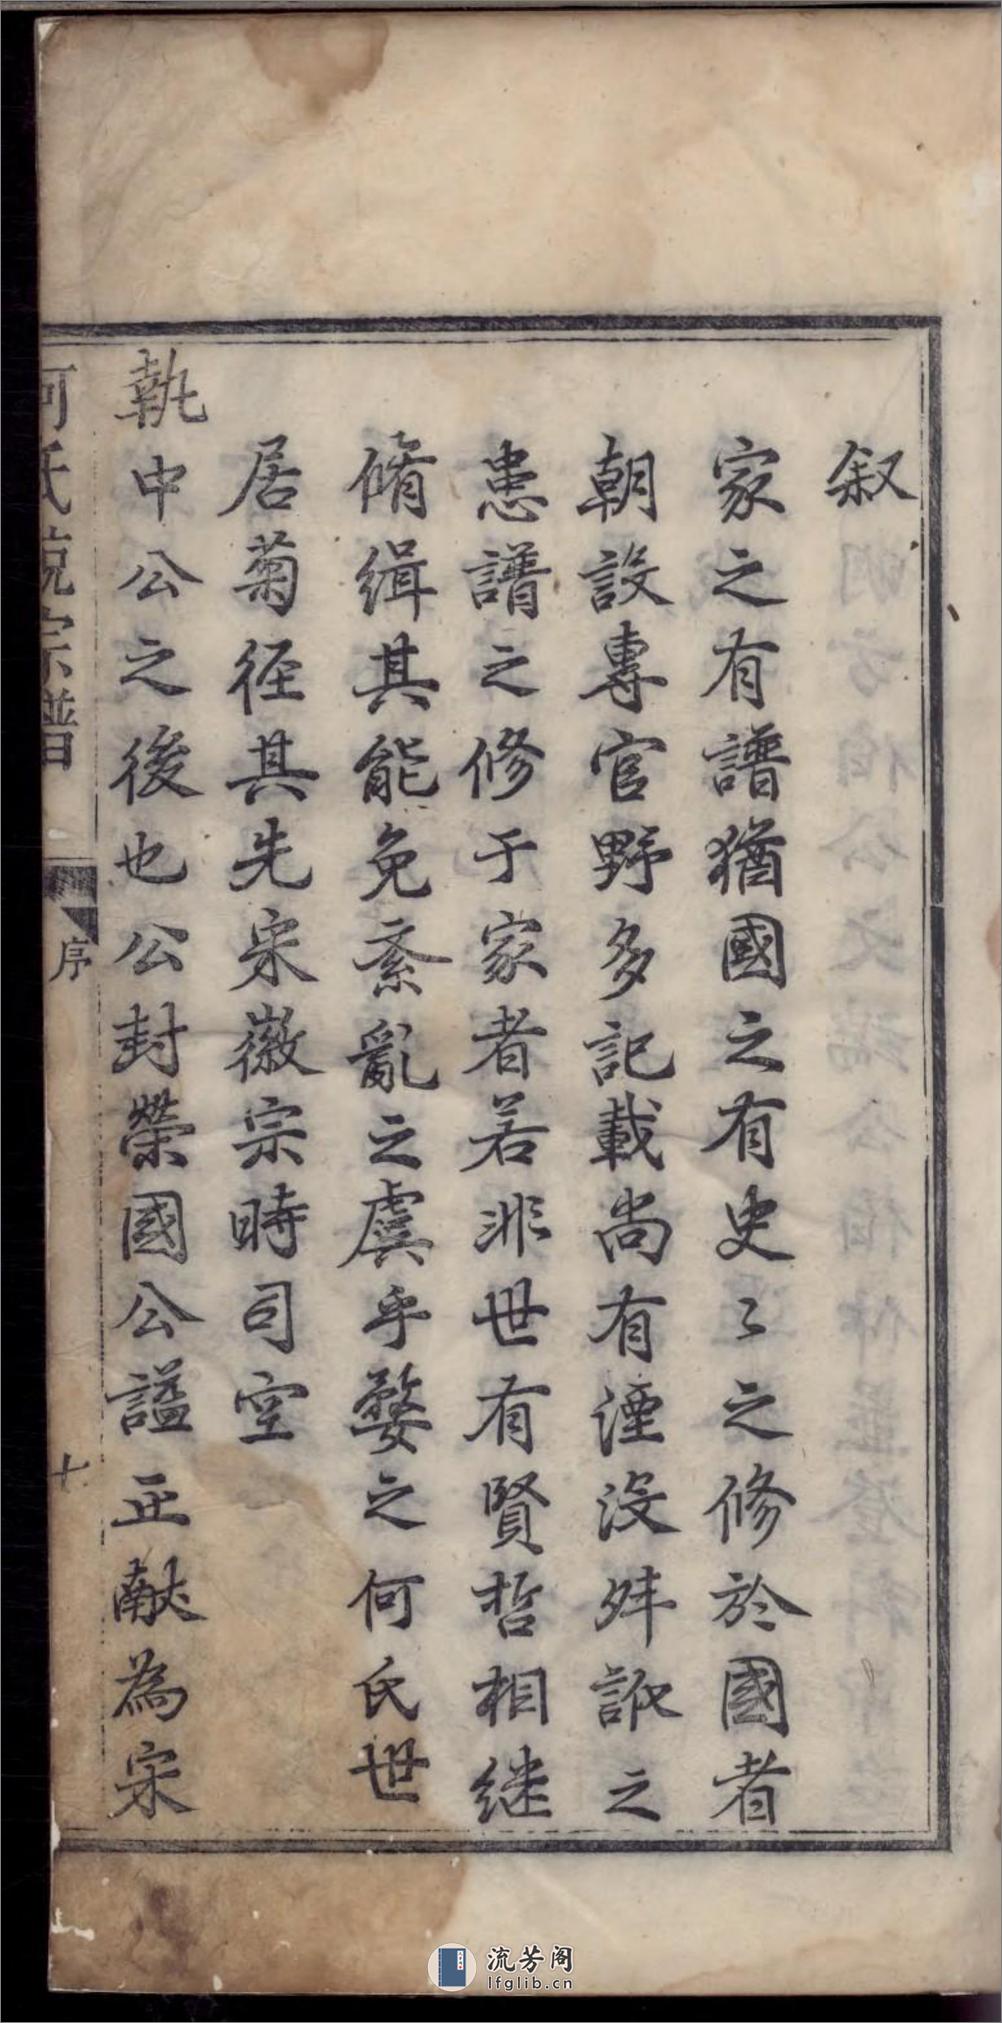 叙
家之有譜猶國之有史〻之修於國者
朝設專官野多記載尚有湮没舛訛之
患譜之修于家者若非世有賢哲相继
脩緝其能免紊亂之虞乎婺之何氏世
居菊徑其先宋徽宗時司空
執中公之後也公封榮國公謚正献為宋
何氏統宗譜
序
十
流芳阁
lfglib.cn